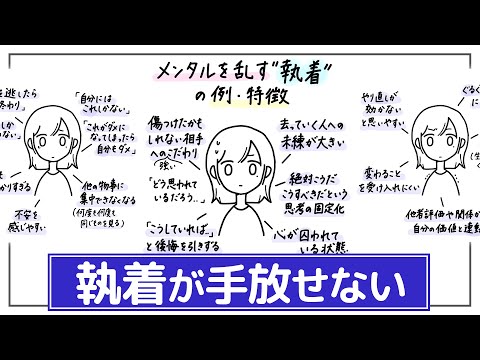 メンタルを乱す"執着"
の例・特徴
を逃したら
終わり」
「自分には
これしかない」
「これがダメに
なってしまったら
自分もダメ」
かりすぎる
他の物事に
集中できなくなる
(何度も何度も
同じものを見る)
不安を
感じやすい
傷つけたかも
しれない相手
へのこだわり
強い
「どう思われて
いるだろう…」
「こうしていれば」
と後悔を引きずる
去っていく人への
未練が大きい
絶対こうだ
こうすべきだという
思考の固定化
心が囚われて
いる状態
やり直しが
効かない
と思いやすい
ぐるぐ
に
変わること
を受け入れにくい
他者評価や関係が
自分の価値と連動
執着が手放せない